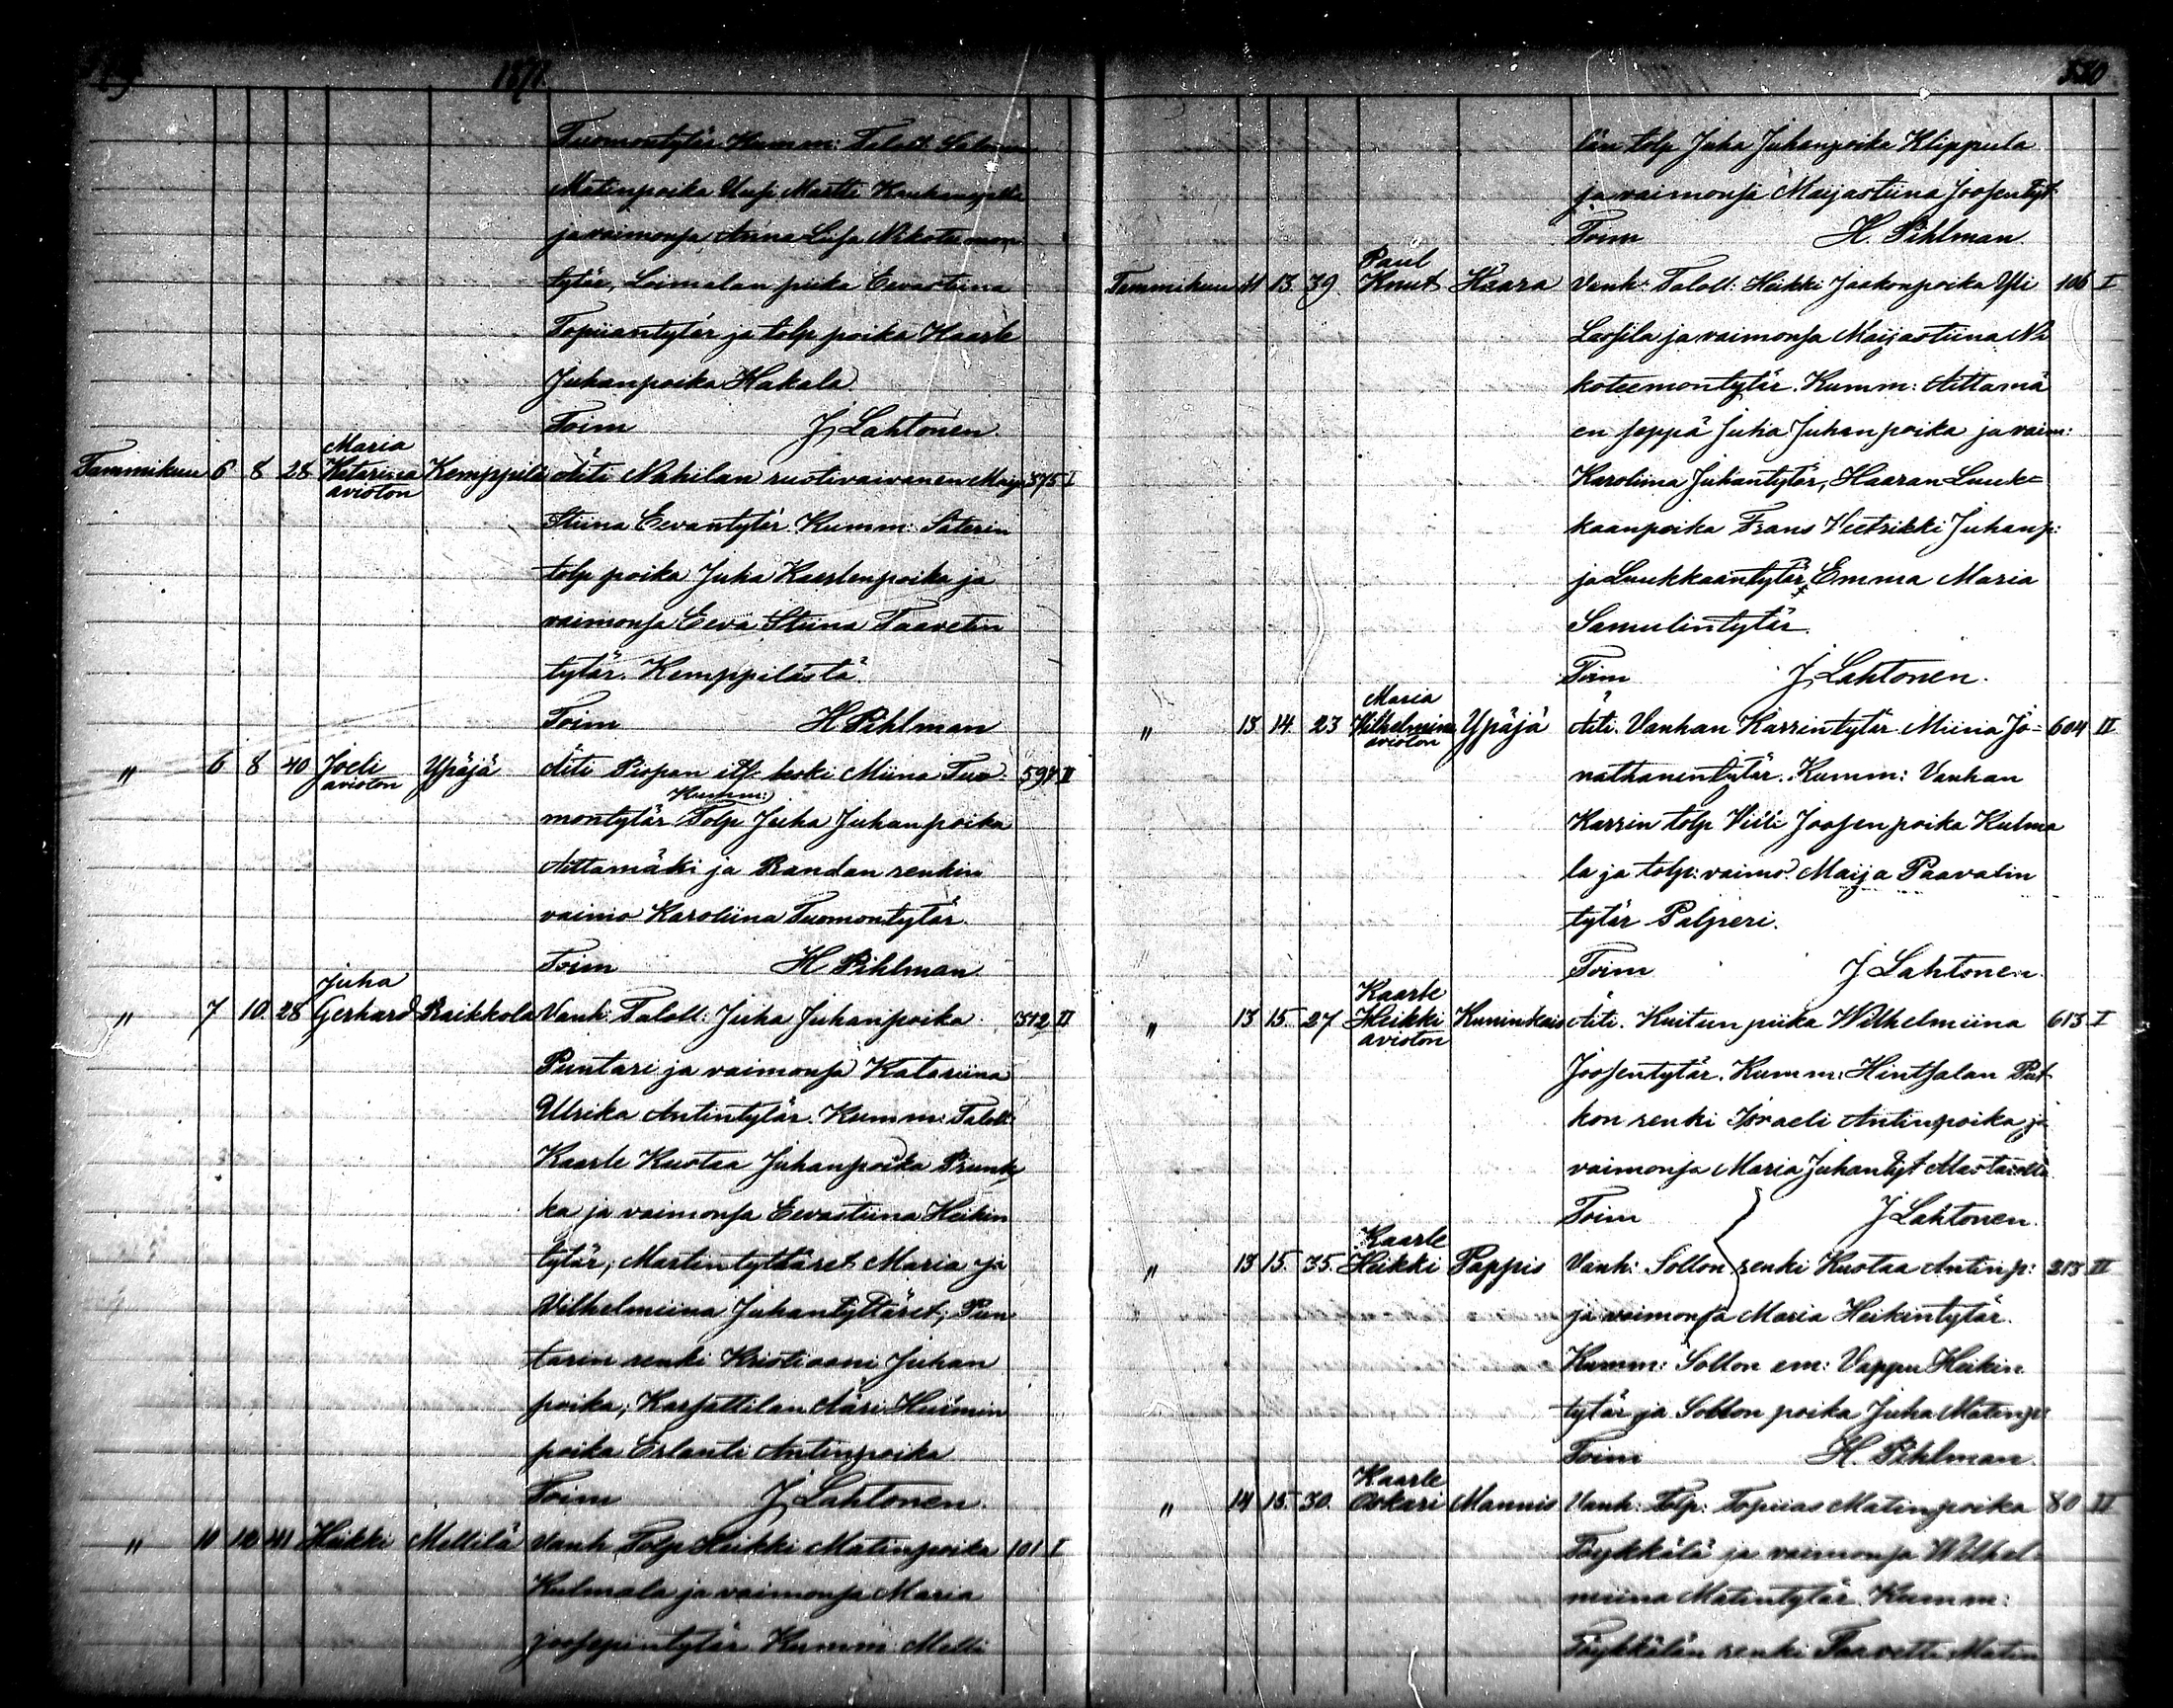 1877
Tuomontytär. Kumm: Taloll.
Matinpoika Uusi Martti
ja vaimonsa Anna Liisa Nikoteemon
tytär, Loimalan piika Eevastiina
Topiiantytär ja tolp poika Kaarle
Juhanpoika Hakala.
Toim J. Lahtonen.
Maria
Tammikuu 6 8 28 Katarina Kemppilä Äiti Nahilan ruotivaivanen Maija 375 I
avioton
Stiina Eevantytär. Kumm: Säterin
tolp poika Juha Kaarlenpoika ja
vaimonsa Eeva Stiina Taavetin
tytär. Kemppilästä.
Toim H Pihlman
" 6 8 40 Joeli Ypäjä Äiti Piopan its. Miina Tuo 594 II
avioton
Kumm:
montytär Tolp Juha Juhanpoika
Aittamäki ja Randan renkin
vaimo Karoliina Tuomontytär.
Toim H Pihlman
Juha
" 7 10 28 Gerhard Raikkola Vanh: Taloll: Juha Juhanpoika 512 II
Puntari ja vaimonsa Katariina
Ulrika Antintytär. Kumm: Taloll:
Kaarle Kustaa Juhanpoika Prunk
ka ja vaimonsa Eevastiina Heikin
tytär, Martin tyttäret Maria ja
Vilhelmiina Juhantyttäret, Pun
tarin renki Kristiaani Juhan
poika, Karsattilan Huimin
poika Erlanti Antinpoika
Toim J. Lahtonen.
" 10 10 41 Heikki Mellilä Vanh. Tolp Heikki Matinpoika 101 I
Kulmala ja vaimonsa Maria
Joosepintytär Kumm: Melli
550
län tolp Juha Juhanpoika Klippula
ja vaimonsa Maijastiina Joosentyt.
Toim H. Pihlman.
Paul
Tammikuu 11 13 39 Knut Haara Vanh: Taloll: Heikki Jaakonpoika Yli 106 I
Lassila ja vaimonsa Maijastiina Ni
koteemontytär. Kumm: Aittamä
en seppä Juha Juhanpoika ja vaim:
Karoliina Juhantytär, Haaran Luuk=
kaanpoika Frans Veetrikki Juhanp:
ja Luukkaantytär Emma Maria
Samulintytär.
Toim J. Lahtonen.
Maria
" 13 14 23 Vilhelmiina Ypäjä Äiti. Vanhan Karrintytär Miina Jo= 604 II
avioton
nathanentytär. Kumm: Vanhan
Karrin tolp Villi Joosenpoika Kulma
la ja tolp: vaimo Maija Paavalin
tytär Palperi.
Toim J Lahtonen.
Kaarle
" 13 15 27 Heikki Äiti. Huitun piika Wilhelmiina 613 I
avioton
Joosentytär. Kumm: Hintsalan Put
kon renki Israeli Antinpoika ja
vaimonsa Maria Juhantyt
Toim J Lahtonen.
Kaarle
" 13 15 35 Heikki Pappis Vanh: Sollon renki Kustaa Antinp: 213 II
ja vaimonsa Maria Heikintytär.
Kumm: Sollon em: Vappu Heikin
tytär ja Sollon poika Juha Matinp:
Toim H. Pihlman.
Kaarle
" 14 15 30 Oskari Mannis Vanh: Tolp: Topiias Matinpoika 80 II
Töykkälä ja vaimonsa Wilhel
miina Matintytär. Kumm:
Töykkälän renki Taavetti Matin